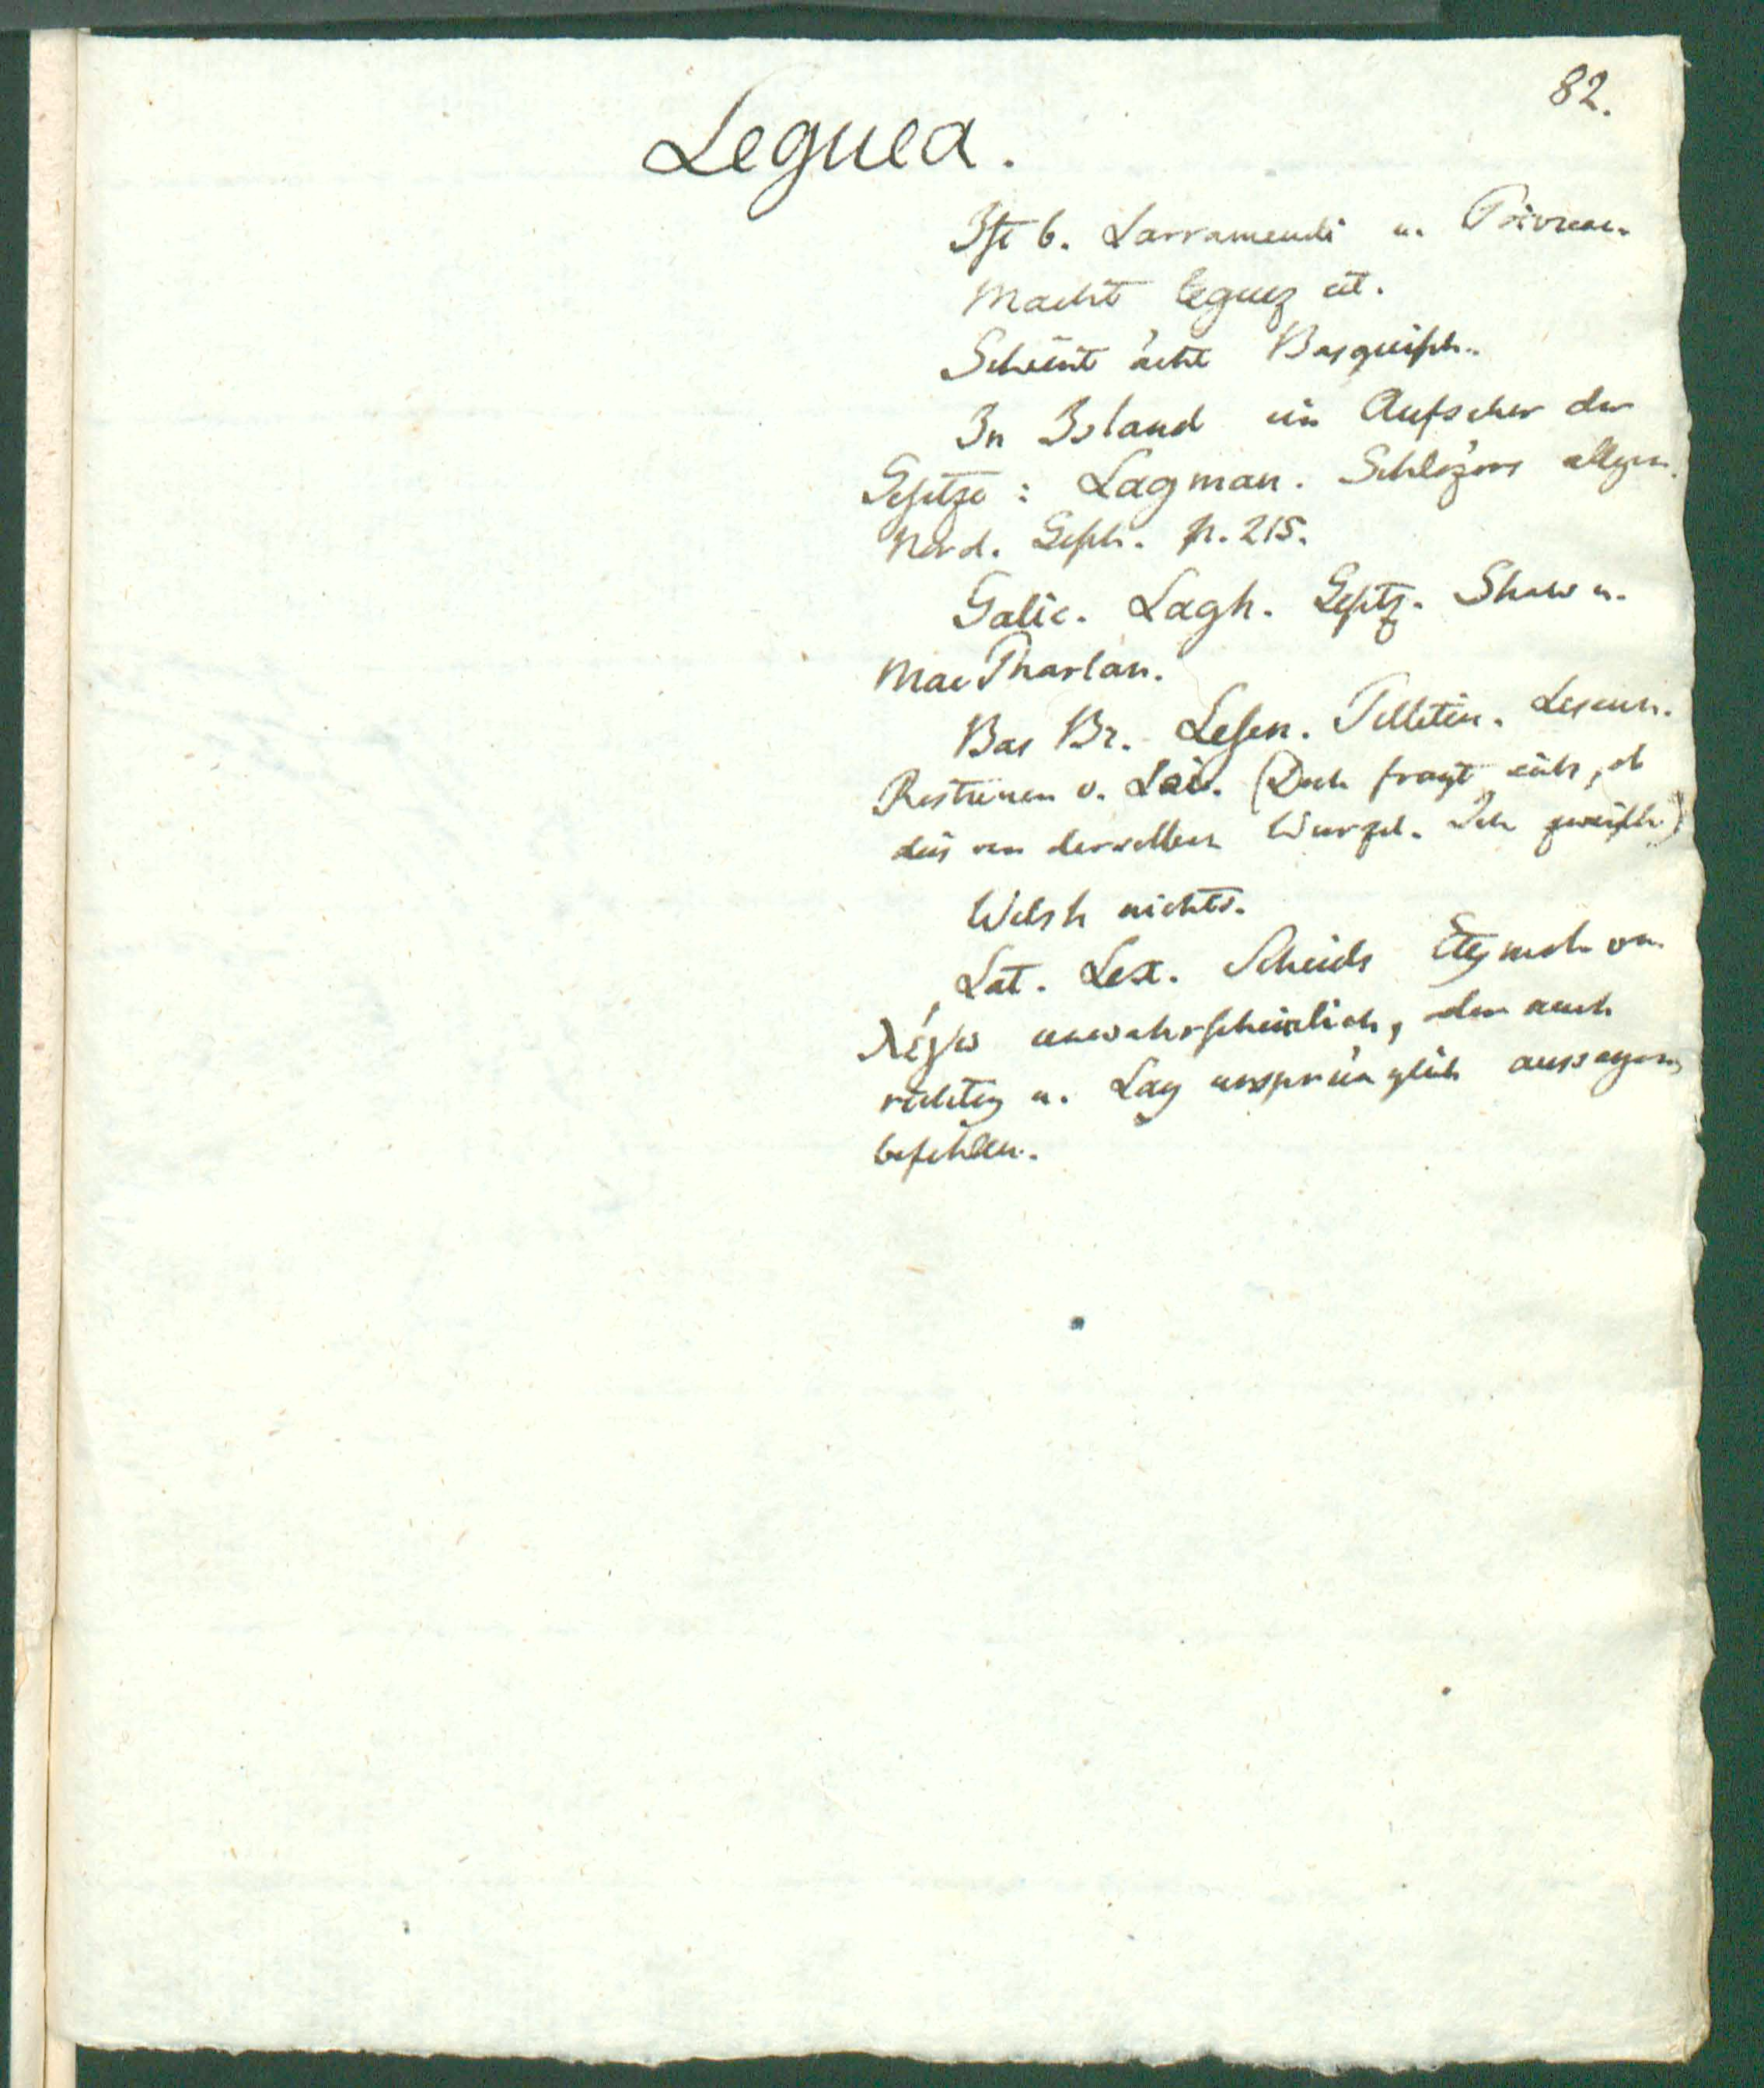 82.
Leguea.
Ist b. Larramendi u. Poivreau.
Macht leguez cet.
Scheint ächt Basquisch.
In Island ein Aufseher der
Gesetze: Lagman. Schlözers allgem.
Nord. Gesch. p. 215.
Galic. Lagh. Gesetz. Shaw u.
MacPharlan.
Bas Br. Lesen. Pelletier. Lesenn.
Rostrenen v. Loi. (Doch fragt sichs, ob
dies von derselben Wurzel. Ich zweifle.)
Welsh nichts.
Lat. Lex. Scheids Etymol. von
λέγω unwahrscheinlich, aber auch
richtig u. Lag ursprünglich aussagen,
befehlen.